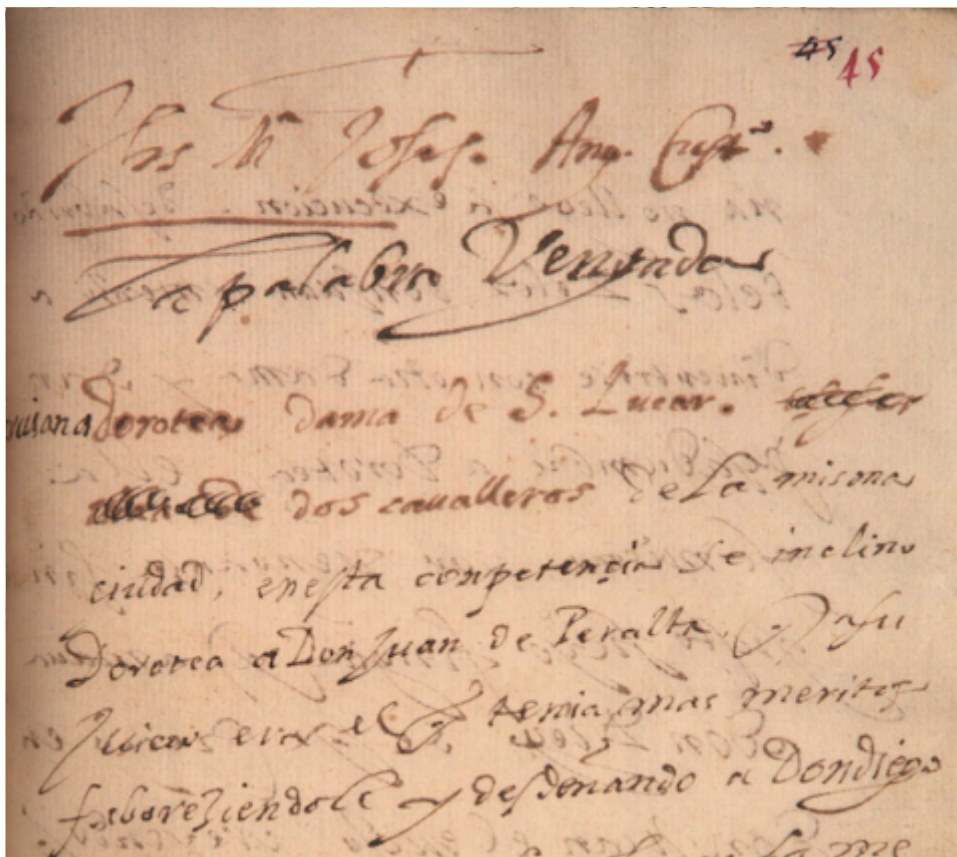 45 45
Jhs Mª Joseph. Ang. Cust.º.
La palabra Vengada
dorotea dama de S. Lucar.
dos cavalleros de La misma
ciudad, enesta conpetençia se inclino
Dorotea a Don Juan de Peralta, q̃ asu
Juicio era el q̃ tenia mas meritos
faboreziendole y desdenando a Dondiego